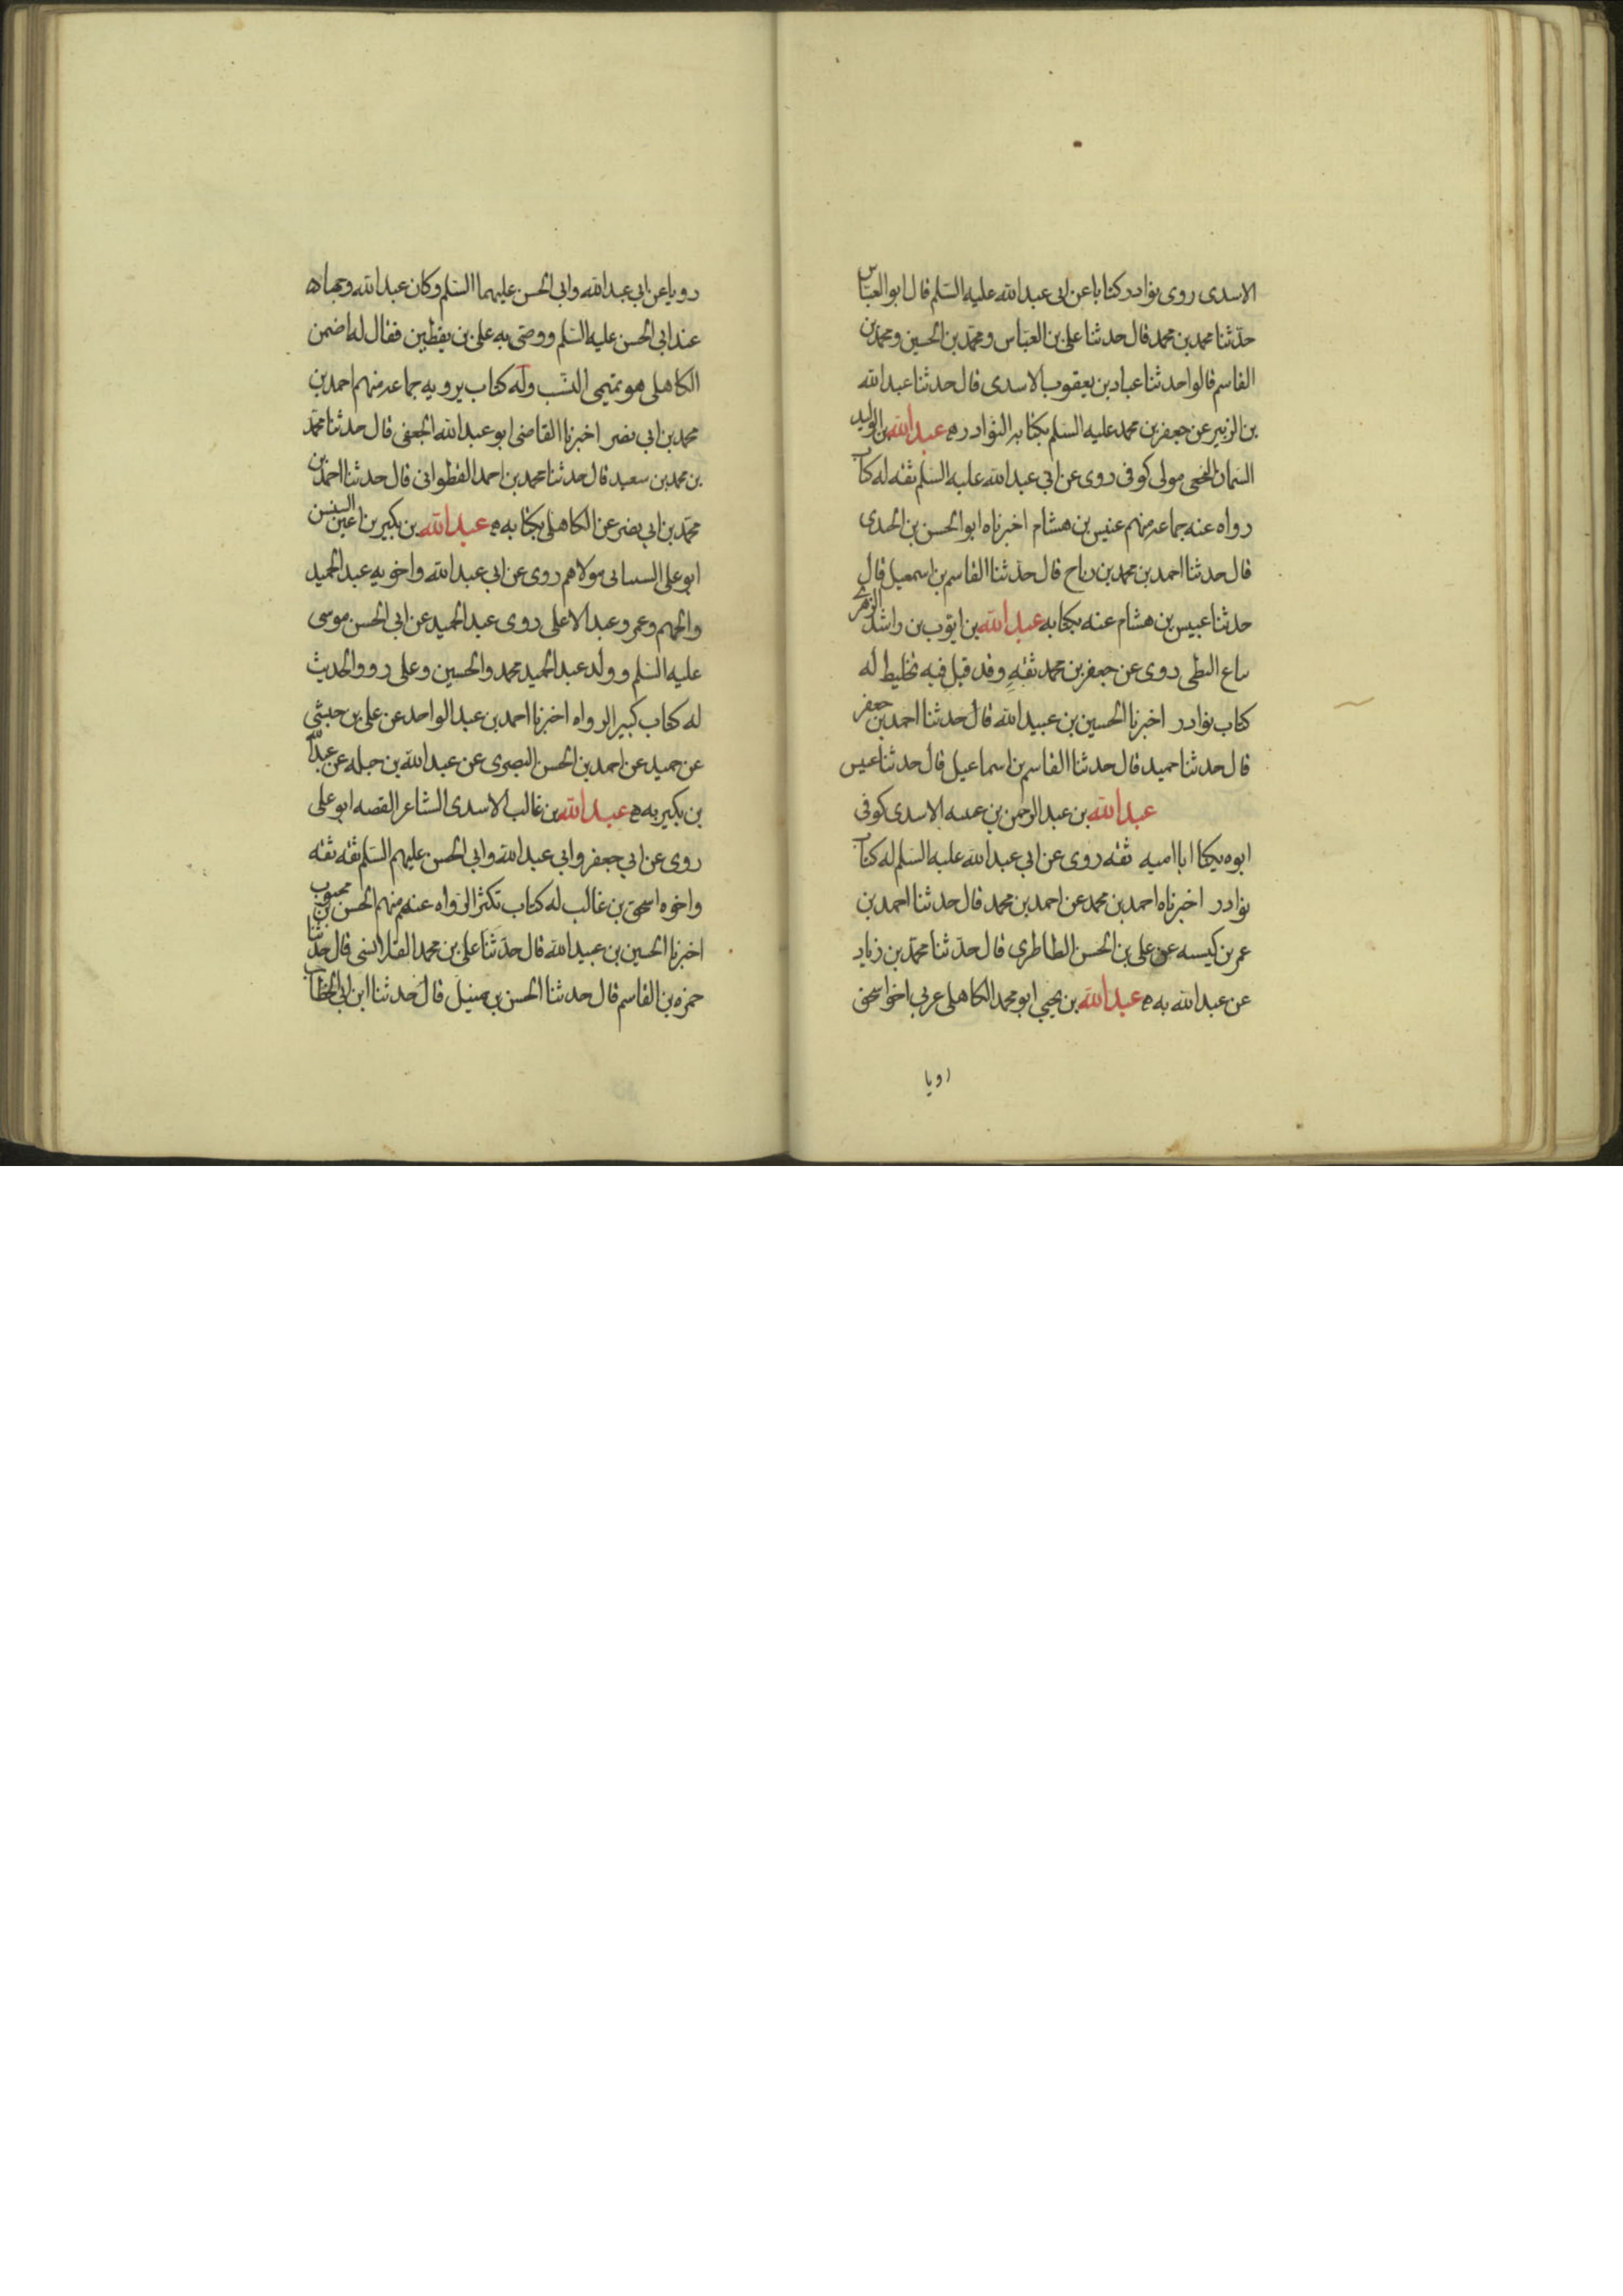 الاسدی روی نوادر کتابا عن ابی عبدالله علیه السلم قال ابو العباس
حدثنا محمد بن محمد قال حدثنا علی بن العباس و محمد بن الحسین و محمد بن
القاسم قالوا حدثنا عباد بن یعقوب الاسدی قال حدثنا عبدالله
بن الزبیر عن جعفر بن محمد علیه السلم بکتابه النوادر ه عبدالله بن الولید
السمان النخعی مولی کوفی روی عن ابی عبدالله علیه السلم ثقه له کتاب
رواه عنه جماعه منهم عنبس بن هشام اخبرناه ابو الحسن بن الجندی
قال حدثنا احمد بن محمد بن رباح قال حدثنا القاسم بن اسمعیل قال
حدثنا عبیس بن هشام عنه بکتابه عبدالله بن ایوب بن راشد الزهری
بیاع الزطی روی عن جعفر بن محمد ثقه وقد قیل فیه تخلیط له
کتاب نوادر اخبرنا الحسین بن عبیدالله قال حدثنا احمد بن جعفر
قال حدثنا حمید قال حدثنا القاسم بن اسماعیل قال حدثنا عبیس
عبدالله بن عبدالرحمن بن عتیبه الاسدی کوفی
ابوه یکنا ابا امیه ثقه روی عن ابی عبدالله علیه السلم له کتاب
نوادر اخبرناه احمد بن محمد عن احمد بن محمد قال حدثنا احمد بن
عمر بن کیسبه عن علی بن الحسن الطاطری قال حدثنا محمد بن زیاد
عن عبدالله به ه عبدالله بن یحیی ابو محمد الکاهلی عربی اخو اسحق
رویا
رویا عن ابی عبدالله وابی الحسن علیهما السلم وکان عبدالله وجها ه
عند ابی الحسن علیه السلم ووصی به علی بن یقطین فقال له اضمن
الکاهلی هو تمیمی النسب وله کتاب یرویه جماعه منهم احمد بن
محمد بن ابی نصر اخبرنا القاضی ابو عبدالله الجعفی قال حدثنا محمد
بن محمد بن سعید قال حدثنا محمد بن احمد القطوانی قال حدثنا احمد بن
محمد بن ابی نصر عن الکاهلی بکتابه ه عبدالله بن بکیر بن اعین السنسن
ابو علی الشیبانی مولاهم روی عن ابی عبدالله واخویه عبدالحمید
والجهم وعمر وعبدالاعلی روی عبدالحمید عن ابی الحسن موسی
علیه السلم وولد عبدالحمید محمد والحسین وعلی رووا الحدیث
له کتاب کبیر الرواه اخبرنا احمد بن عبدالواحد عن علی بن حبشی
عن حمید عن احمد بن الحسن البصری عن عبدالله بن جبله عن عبدالله
بن بکیر به ه عبدالله بن غالب الاسدی الشاعر الفقیه ابو علی
روی عن ابی جعفر وابی عبدالله وابی الحسن علیهم السلم ثقه ثقه
واخوه اسحق بن غالب له کتاب تکثر الرواه عنه منهم الحسن بن محبوب
اخبرنا الحسین بن عبیدالله قال حدثنا علی بن محمد القلانسی قال حدثنا
حمزه بن القاسم قال حدثنا الحسن بن متیل قال حدثنا ابن ابی الخطاب